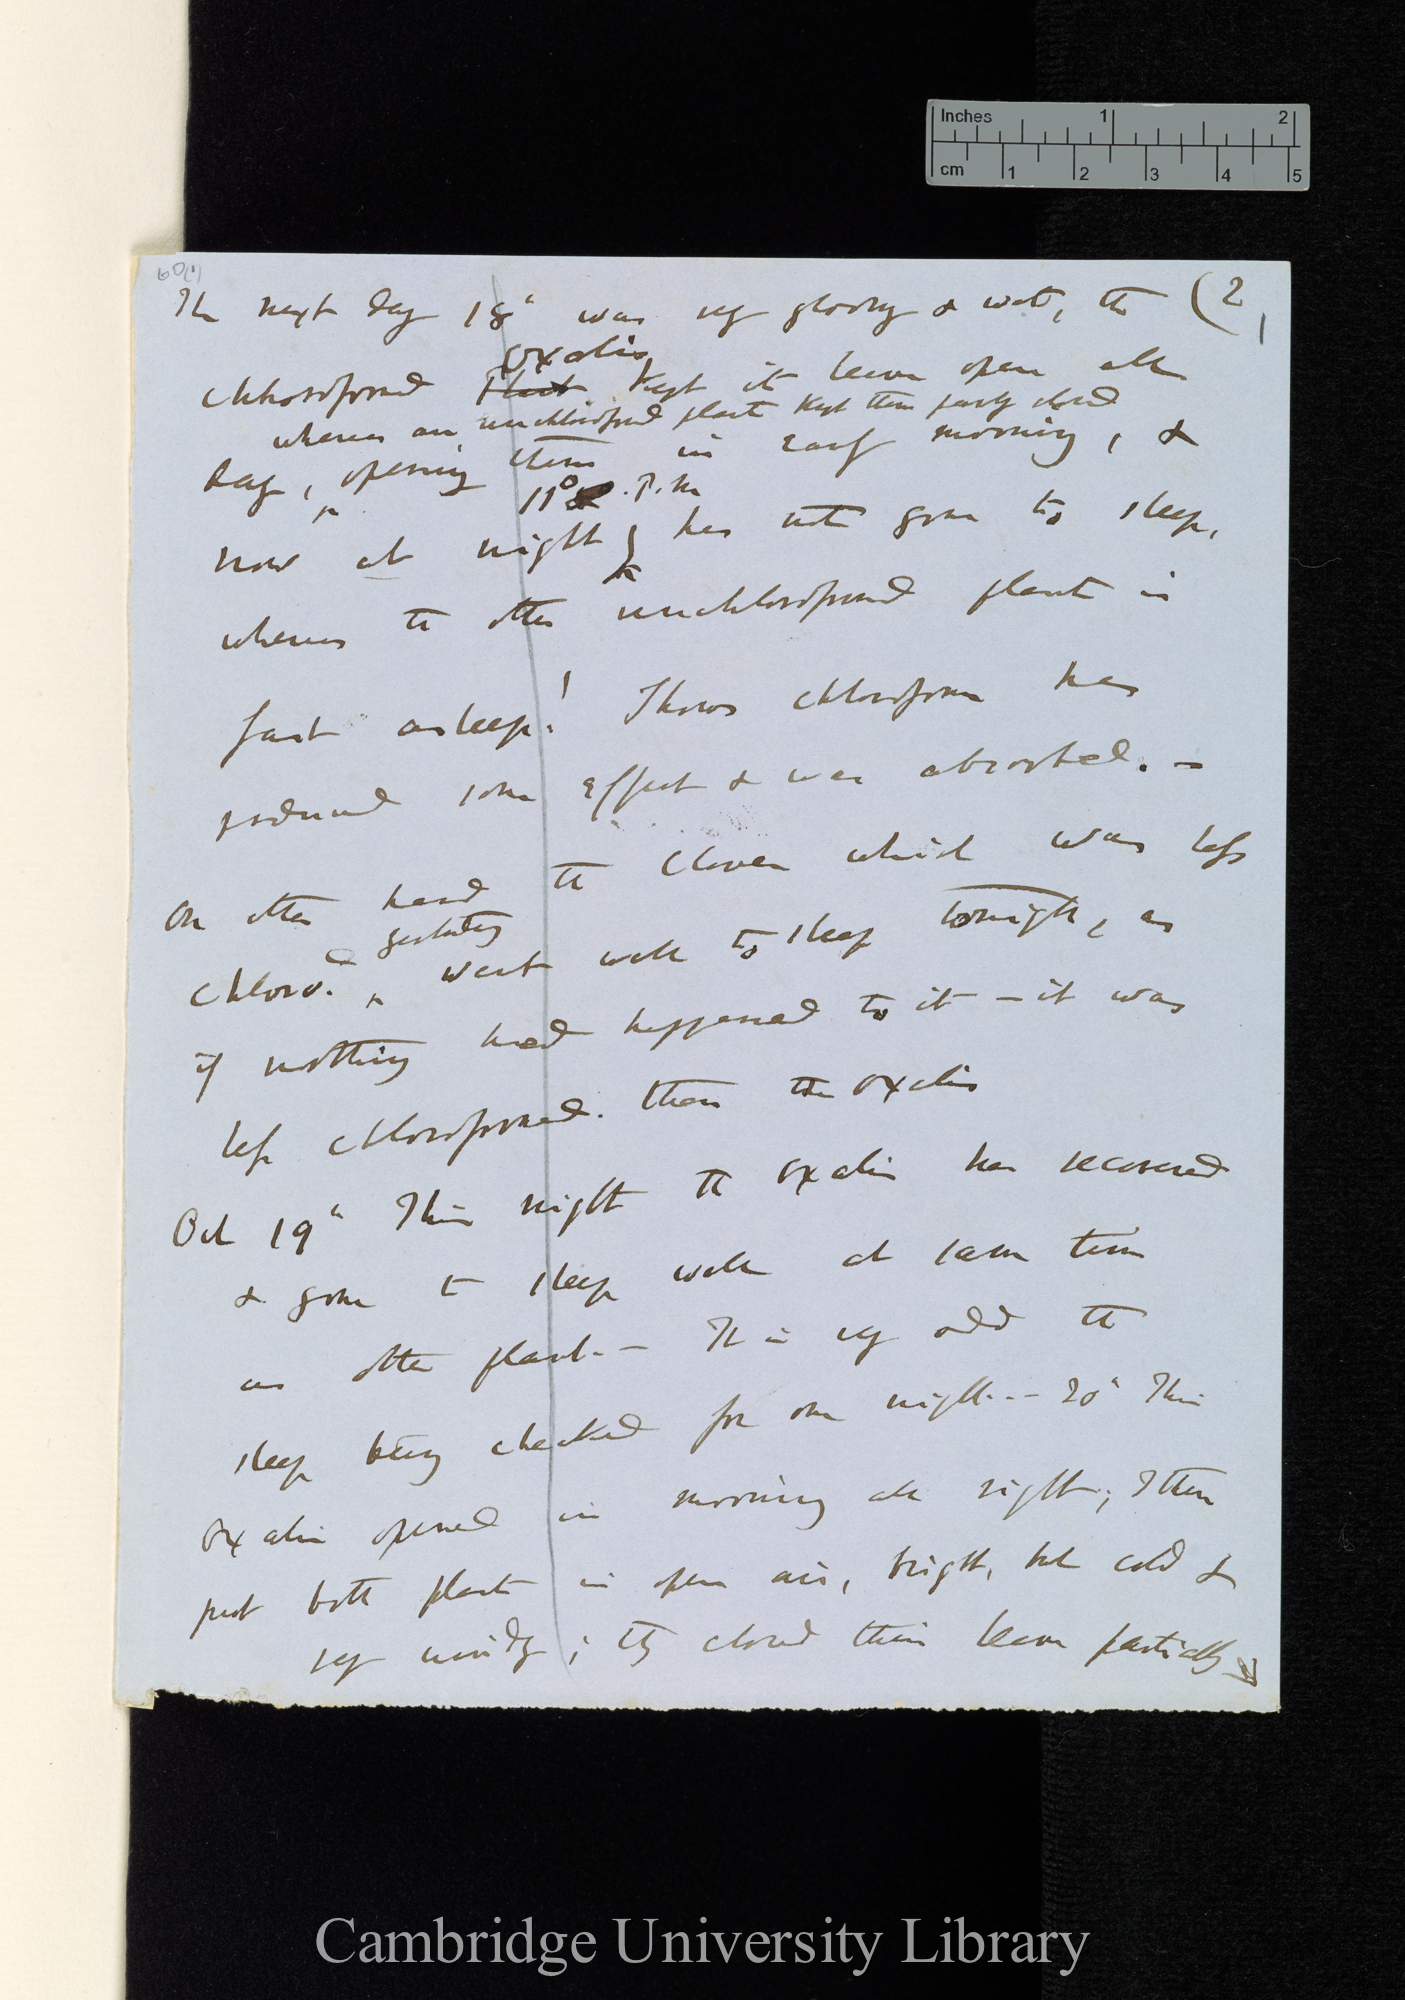 Inches 1 2
cm 1 2 3 4 5
60(1)
(2
The next day 18th was very gloomy & wet, the
Oxalis
chloroformed Plant kept its leaves open all
whereas an unchloroformed plant kept them partly closed
day, opening them in early morning, &
11° P.M
now at night has not gone to sleep,
whereas the other unchloroformed plant is
fast asleep! Shows chloroform has
produced some effect & was absorbed. —
On other hand the Clover which was less
yesterday
chloro.d went well to sleep tonight, as
if nothing had happened to it — it was
less chloroformed. than the oxalis
Oct 19th This night the Oxalis has recovered
& gone to sleep well at same time
as other plant. — It is very odd the
sleep being checked for one night. — 20th This
Oxalis opened in morning all right; I then
put both plants in open air, bright, but cold &
very windy; they closed their leaves partially
Cambridge University Library